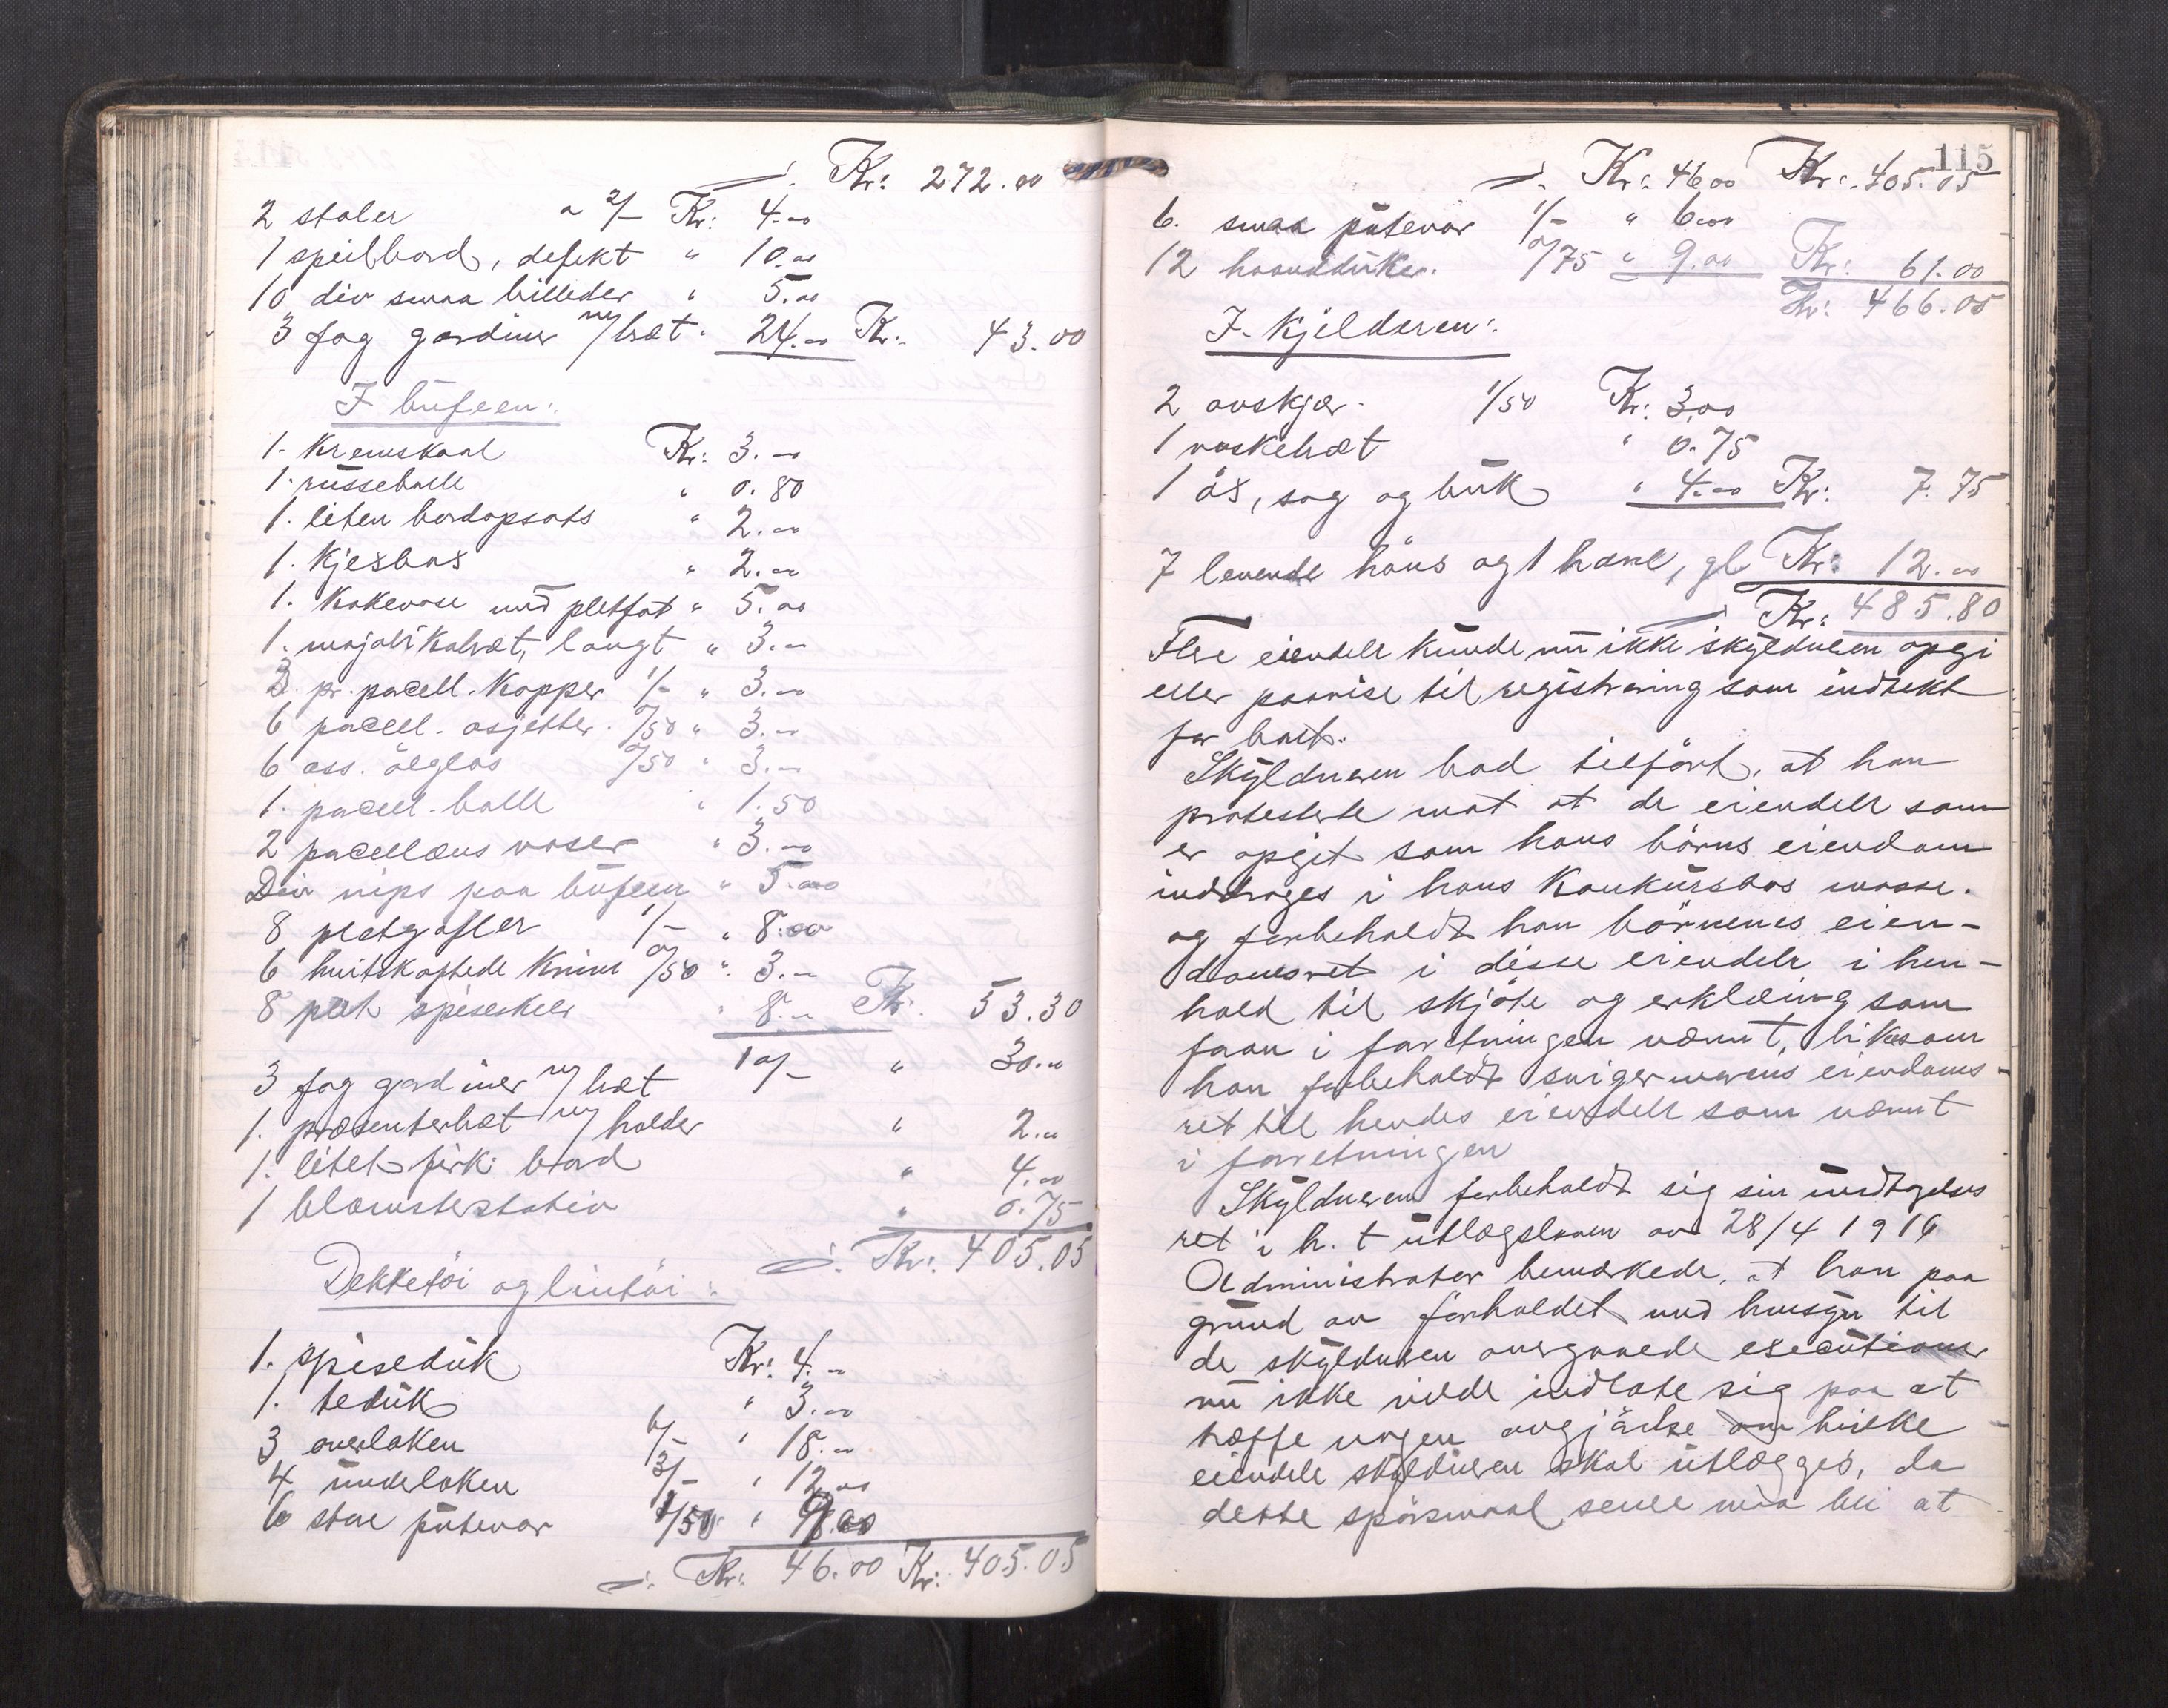 Kr: 272.00
2 stoler a 2/- Kr: 4.00
1 speilbord, defekt " 10.00
10 div smaa billeder " 5.00
3 fag gardiner m/bræt " 24.00 Kr: 43.00
I büfeen:
1. Kremskaal Kr: 3.00
1. püssebolle " 0.80
1. liten bordopsats " 2.00
1. Kjeksbox " 2.00
1. Kakevase med pletfat " 5.00
1. majolikabræt, langt " 3.00
3 pr. pocell. Kopper 1/- " 3.00
6 pocell. asjetter. 0/50 " 3.00
6 ass. ölglas 0/50 " 3.00
1. pocell. bolle " 1.50
2 pocellæns vaser " 3.00
Div nips paa büfeen " 5.00
8 pletgafler 1/- " 8.00
6 hvitskaftede Knive 0/50 " 3.00
8 plet spiseskeer " 8.00 Kr. 53.30
3 fag gardiner m/bræt 10/- " 30.00
1. præsenterbræt m/holder " 2.00
1. litet firk. bord " 4.00
1 blomsterstativ " 0.75
Kr: 405.05
Dekketöi og lintöi:
1. spisedük Kr: 4.00
1. tedük " 3.00
3 overlaken 6/- " 18.00
4 ünderlaken 3/- " 12.00
6 store pütevar 1/50 " 9.00
Kr: 46.00 Kr: 405.05
115
Kr: 46.00 Kr: 405.05
6. smaa pütevar 1/- " 6.00
12 haandduker. 0/75 " 9.00 Kr: 61.00
Kr: 466.05
I Kjelderen:
2 auskjær 1/50 Kr: 3.00
1 vaskebræt " 0.75
1 öx, sag og bük " 4.00 Kr: 7.75
7 levende höns og 1 hane, gl Kr: 12.00
Kr: 485.80
Flere eiendele künde nü ikke skyldneren opgi
eller paavise til registrering som indtekt
for boet.
Skyldneren bad tilfört, at han
protesterte mot at de eiendele som
er opgit som hans börns eiendom
inddrages i hans Konkürsbos masse.
og forbeholdt han börnenes eien-
domsret i disse eiendele i hen-
hold til skjöte og erklæring som
foran i forretningen nævnt, likesom
han forbeholdt svigermorens eiendoms-
ret til hendes eiendele som nævnt
i forretningen
Skyldneren forbeholdt sig sin ündtagelses
ret i h. t ütlægsloven av 28/4 1916
Administrator bemærkede, at han paa
gründ av forholdet med hensyn til
de skyldneren overgaaede execütioner
nü ikke vilde indlate sig paa at
træffe nogen avgjörelse om hvilke
eiendele skyldneren skal ütlægges, da
dette spörsmaal senere maa bli at